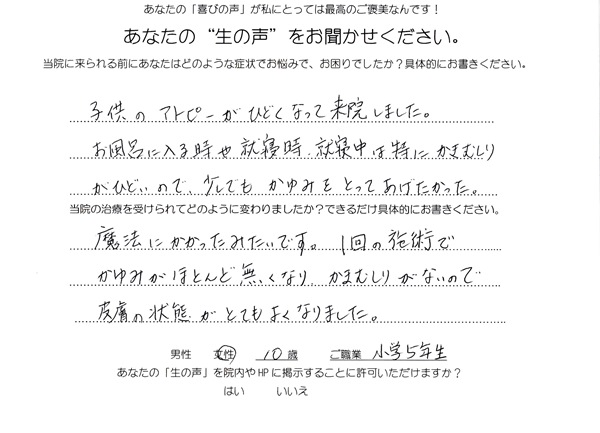 あなたの「喜びの声」が私にとっては最高のご褒美なんです！
あなたの“生の声”をお聞かせください。
当院に来られる前にあなたはどのような症状でお悩みで、お困りでしたか？具体的にお書きください。
子供のアトピーがひどくなって来院しました。
お風呂に入る時や就寝時、就寝中は特にかきむしり
がひどいので、少しでもかゆみをとってあげたかった。
当院の治療を受けられてどのように変わりましたか？できるだけ具体的にお書きください。
魔法にかかったみたいです。1回の施術で
かゆみがほとんど無くなり、かきむしりがないので
皮膚の状態がとてもよくなりました。
男性 女性 10歳 ご職業 小学5年生
あなたの「生の声」を院内やHPに掲示することに許可いただけますか？
はい いいえ